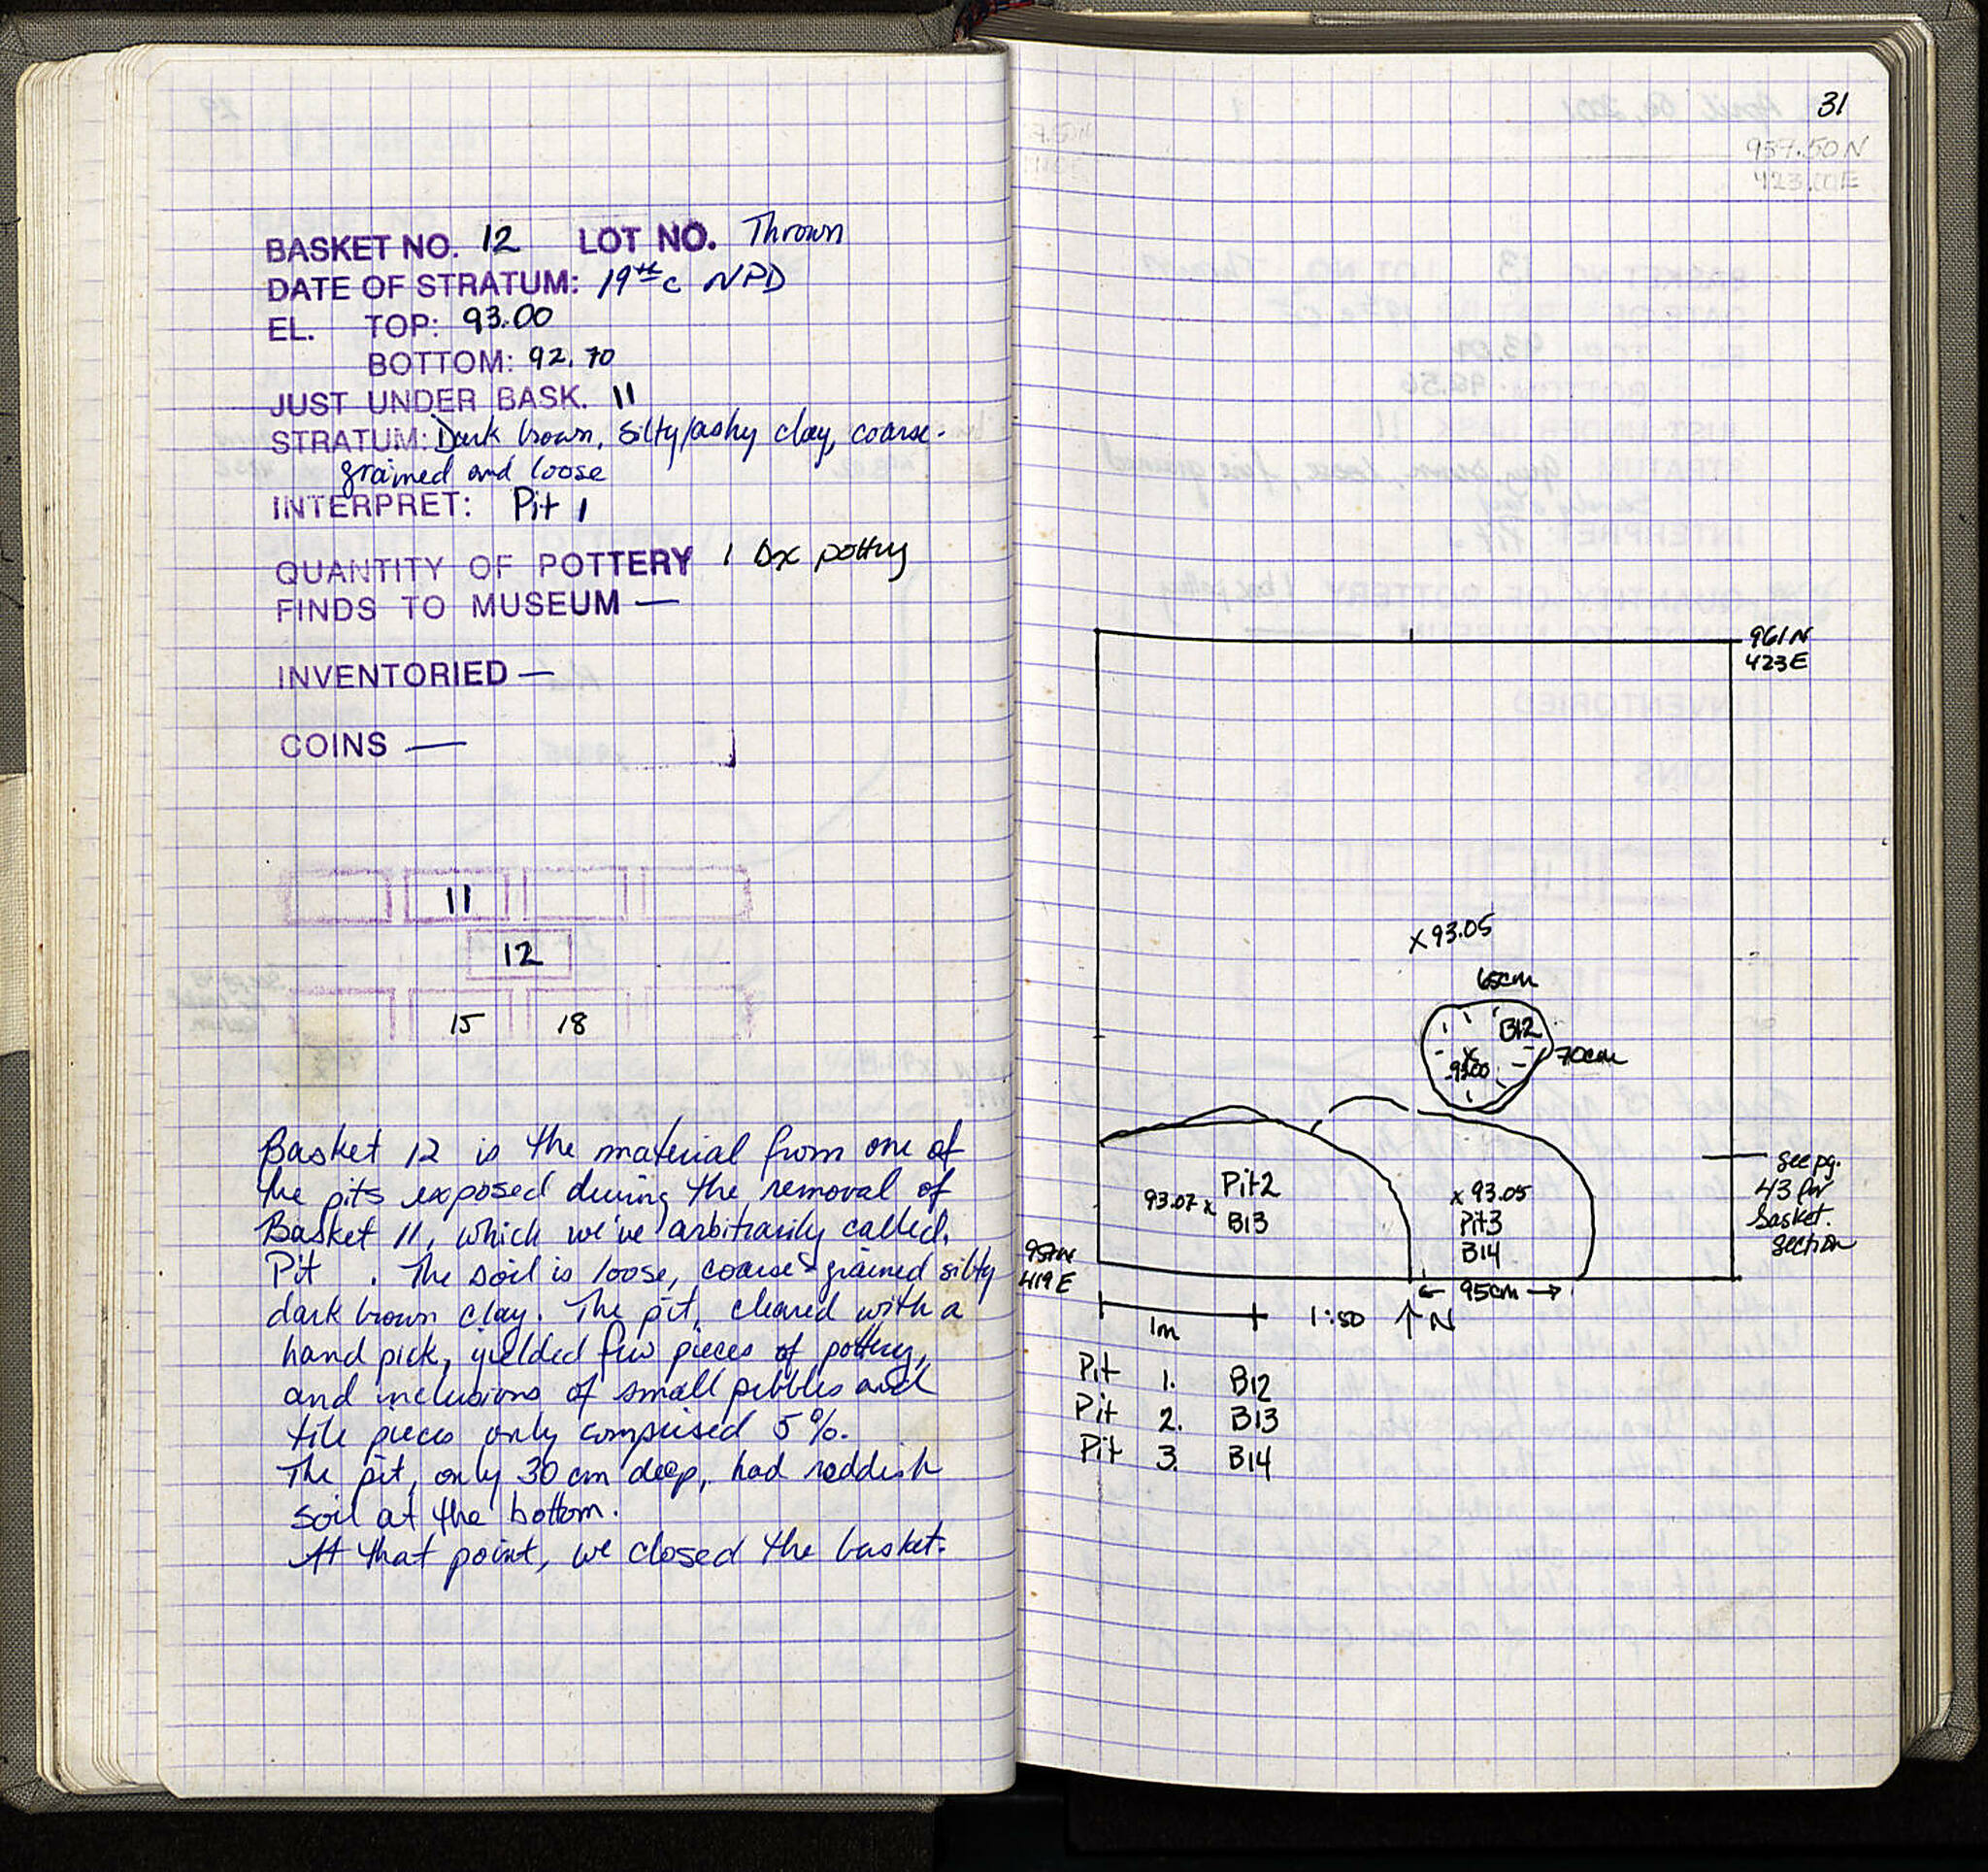 BASKET NO. 12 LOT NO. Thrown
DATE OF STRATUM: 19th c NPD
EL. TOP: 93.00
BOTTOM: 92.70
JUST UNDER BASK. 11
STRATUM: Dark brown, silty/ashy clay, coarse-
grained and loose
INTERPRET: Pit 1
QUANTITY OF POTTERY 1 box pottery
FINDS TO MUSEUM —
INVENTORIED —
COINS —
11
12
15 18
Basket 12 is the material from one of
the pits exposed during the removal of
Basket 11, which we've arbitrarily called
Pit . The soil is loose, coarse grained silty
dark brown clay. The pit, cleared with a
hand pick, yielded few pieces of pottery,
and inclusions of small pebbles and
tile pieces only comprised 5%.
The pit, only 30 cm deep, had reddish
soil at the bottom.
At that point, we closed the basket.
31
957.50 N
423.00 E
961 N
423 E
x 93.05
65cm
B12
70cm
x
93.00
Pit 2
93.07 x
B13
x 93.05
Pit 3
B14
see pg.
43 for
basket
section
957 N
419 E
← 95cm →
1m
1:50 ↑ N
Pit 1. B12
Pit 2. B13
Pit 3. B14